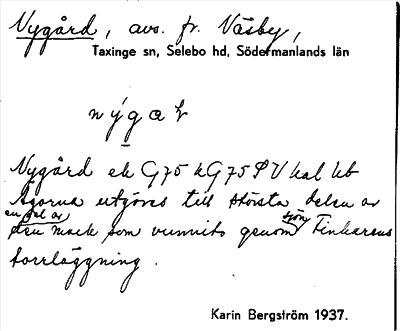 Nygård, avs. fr. Väsby,
Taxinge sn, Selebo hd, Södermanlands län
Nygård ek G75 kG75 PU kal kb
Ägorna utgöres till största delen av
en del av sjön
den mark som vunnits genom Finkarens
torrläggning.
Karin Bergström 1937.